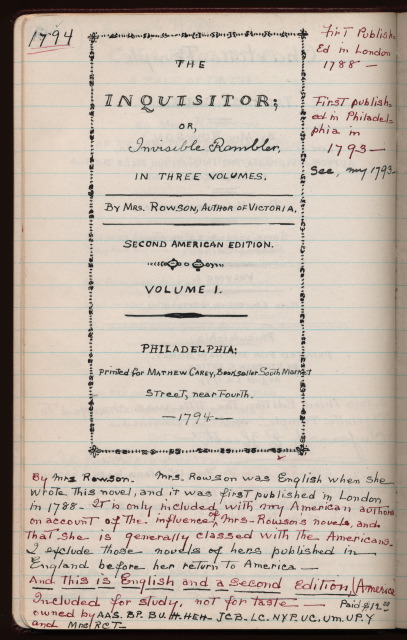 1794
First Publish-
Ed in London
1788 —
First publish-
ed in Philadel-
phia in
1793 —
See, my 1793-
THE
INQUISITOR;
OR,
Invisible Rambler,
IN THREE VOLUMES.
By MRS. ROWSON, AUTHOR OF VICTORIA.
SECOND AMERICAN EDITION.
VOLUME I.
PHILADELPHIA:
Printed for MATHEW CAREY, Bookseller South Market
Street, near Fourth.
—1794—
By Mrs Rowson. Mrs. Rowson was English when she
wrote this novel, and it was first published in London
in 1788- It is only included with my American authors
on account of the influence of Mrs-Rowson's novels, and
that she is generally classed with the Americans.
I exclude those novels of hers published in
England before her return to America —
And this is English and a Second Edition (America
Included for study, not for taste — Paid $12.00
owned by AAS. BP. BU. HEH. JCB. LC. NYP. UC. UM. UP. Y
and Mrs RCT—